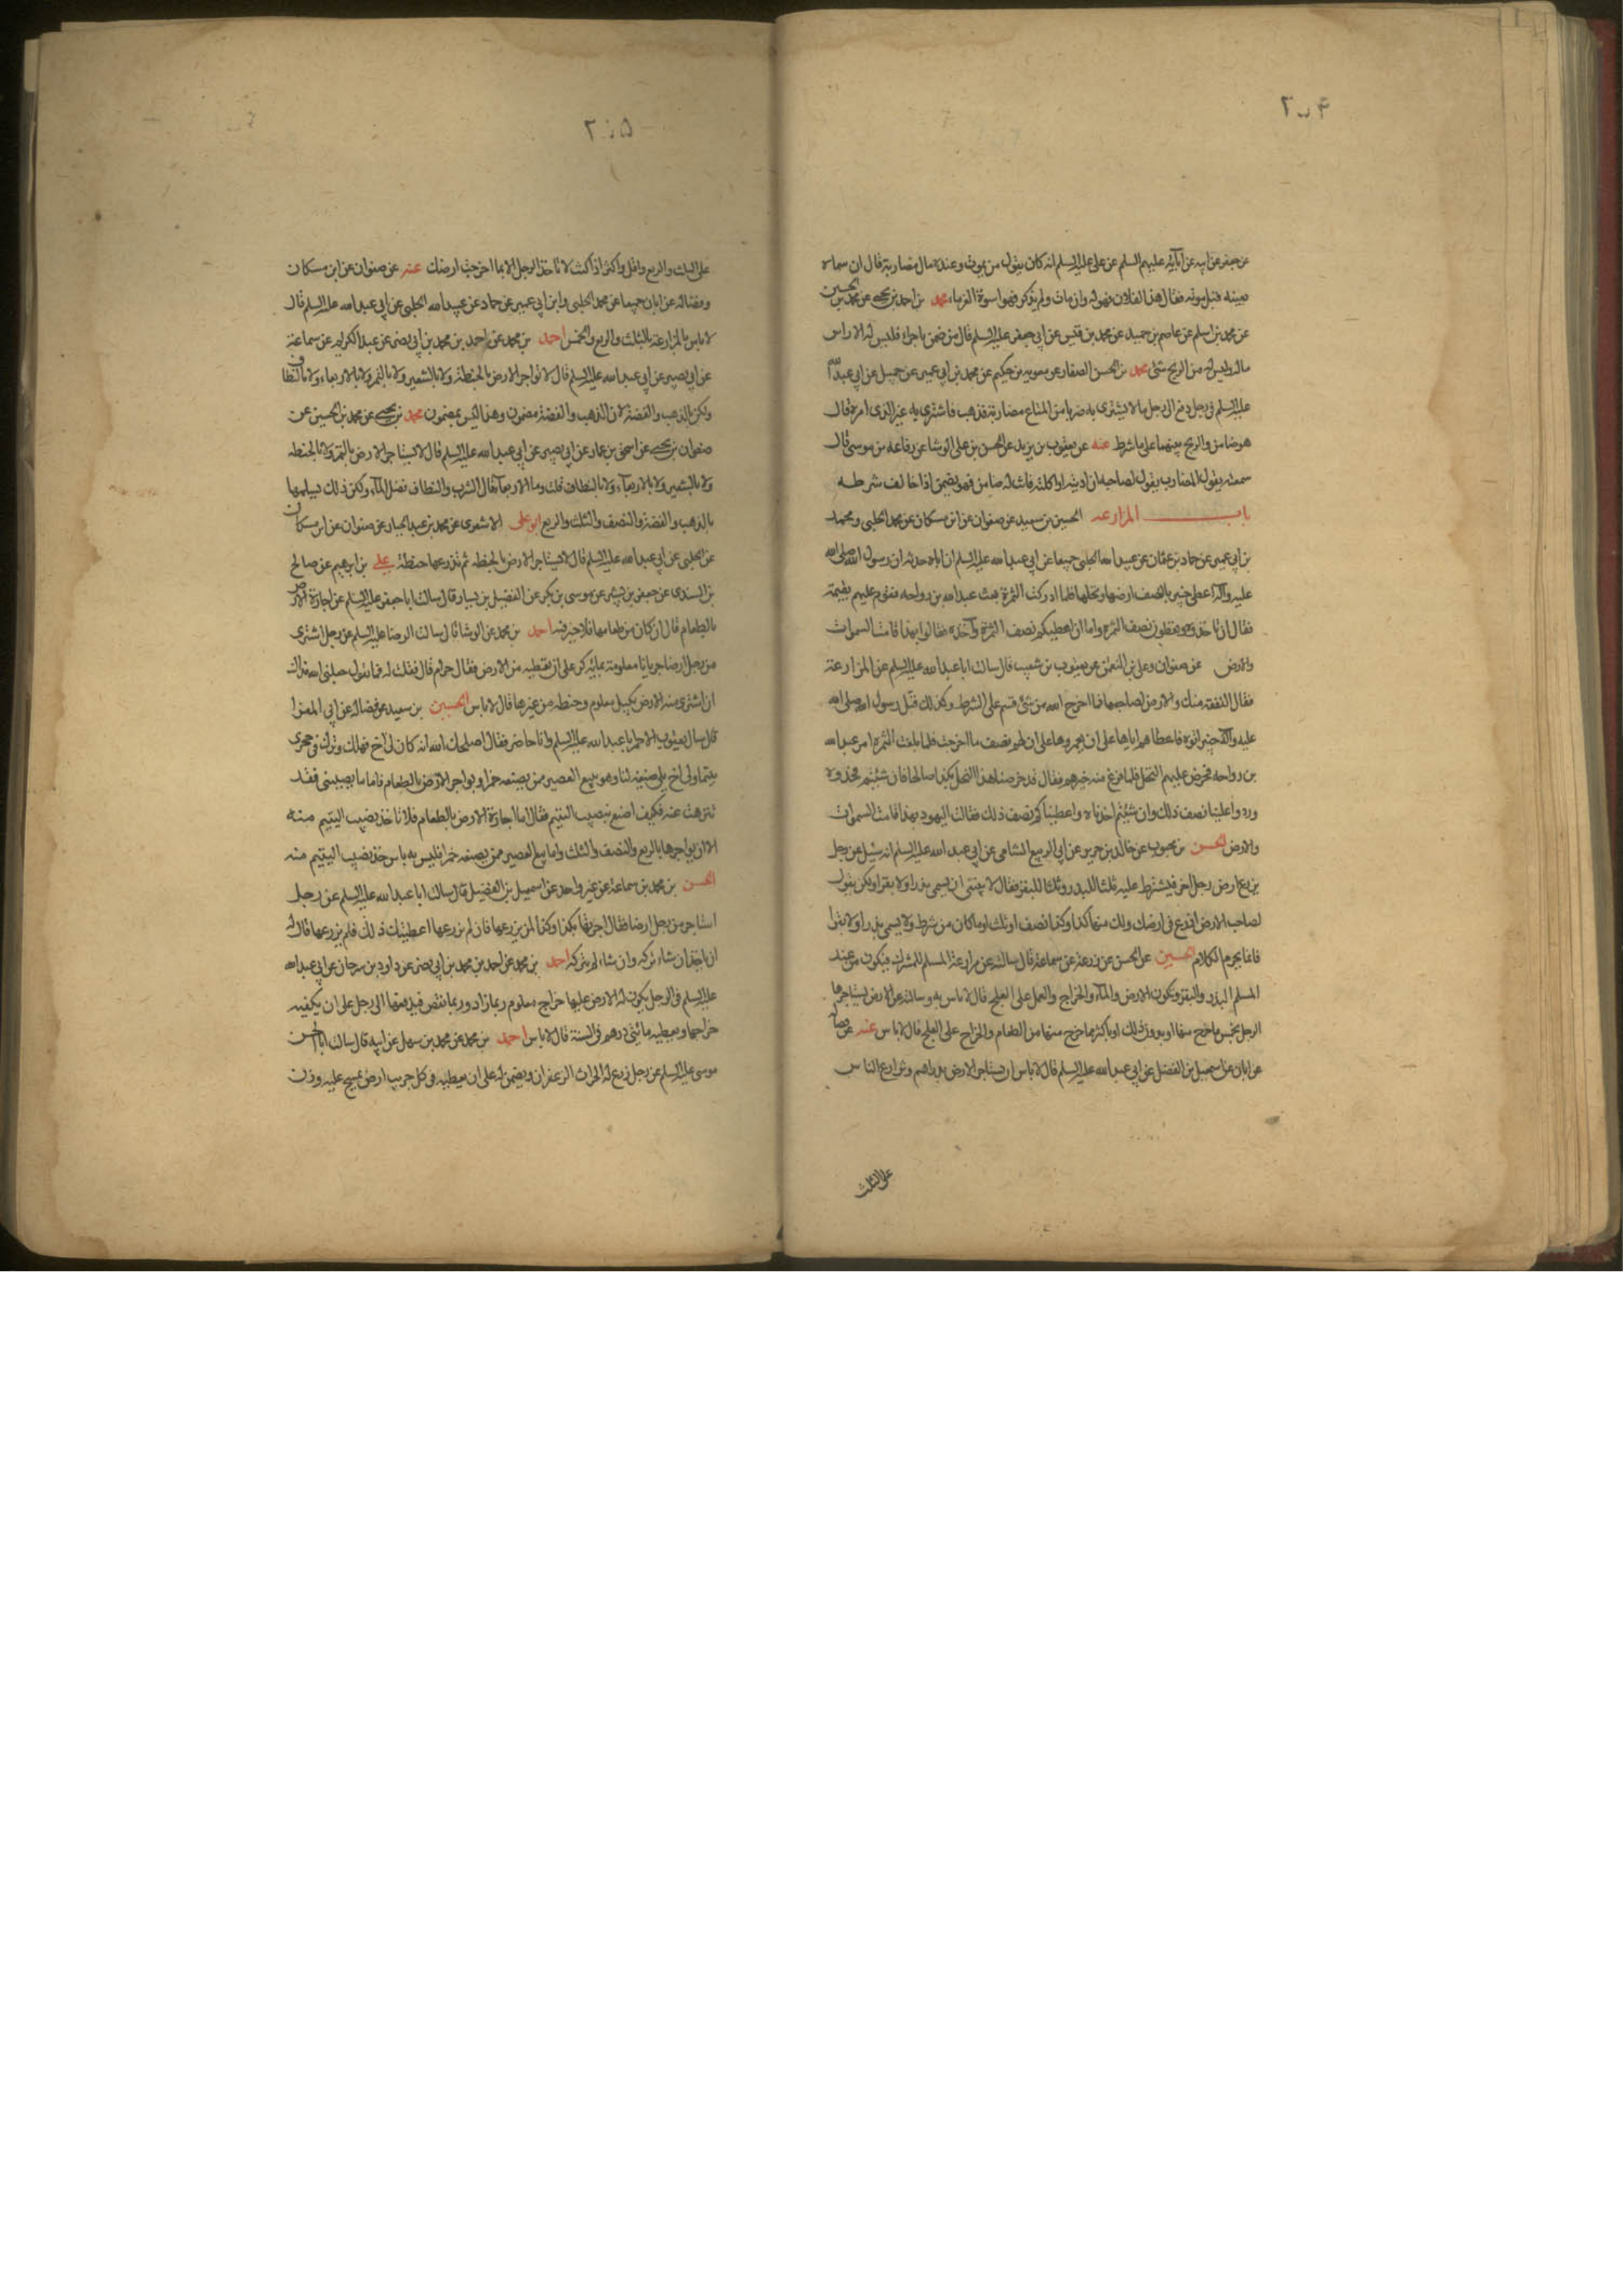 ۲۰۴
عن جعفر عن ابيه عن آبائه عليهم السلم عن على عليه السلم انه كان يقول من يموت وعنده مال مضاربة قال ان سماه
بعينه قبل موته فقال هذا لفلان فهو له وان مات ولم يذكر فهو اسوة الغرماء محمد بن احمد بن يحيى عن محمد بن الحسين
عن محمد بن اسلم عن عاصم بن حميد عن محمد بن قيس عن ابى جعفر عليه السلم قال من ضمن تاجرا فليس له الا راس
ماله وليس له من الربح شئ محمد بن الحسن الصفار عن معويه بن حكيم عن محمد بن ابى عمير عن جميل عن ابى عبد الله
عليه السلم فى رجل دفع الى رجل مالا يشترى به ضربا من المتاع مضاربة فذهب فاشترى به غير الذى امره قال
هو ضامن والربح بينهما على ما شرط عنه عن يعقوب بن يزيد عن الحسن بن على الوشا عن رفاعه بن موسى قال
سمعته يقول المضارب يقول لصاحبه ان ادنته او اكلته فانت له ضامن فهو يضمن اذا خالف شرطه
باب المزارعه الحسين بن سعيد عن صفوان عن ابن مسكان عن محمد الحلبى ومحمد
بن ابى عمير عن حماد بن عثمان عن عبيد الله الحلبى جميعا عن ابى عبد الله عليه السلم ان اباه حدثه ان رسول الله صلى الله
عليه وآله اعطى خيبر بالنصف ارضها ونخلها فلما ادركت الثمرة بعث عبد الله بن رواحه فقوم عليهم بقيمة
فقال ان تاخذوه نصف الثمره واما ان اعطيكم نصف الثمرة وآخذه فقالوا بهذا قامت السموات
والارض عن صفوان وعلى بن النعمن عن يعقوب بن شعيب قال سالت ابا عبد الله عليه السلم عن المزارعة
فقال النفقة منك والارض لصاحبها فما اخرج الله من شئ قسم على الشرط وكذلك قبل رسول الله صلى الله
عليه وآله خيبر اتوه فاعطاهم اياها على ان يعمروها على ان لهم نصف ما اخرجت فلما بلغت الثمره امر عبد الله
بن رواحه فخرص عليهم النخل فلما فرغ منه خيرهم فقال قد خرصنا هذا النخل بكذا صاعا فان شئتم فخذوه
وردوا علينا نصف ذلك وان شئتم اخذناه واعطيناكم نصف ذلك فقالت اليهود بهذا قامت السموات
والارض الحسن بن محبوب عن خالد بن جرير عن ابى الربيع الشامى عن ابى عبد الله عليه السلم انه سئل عن رجل
يزرع ارض رجل اخر فيشترط عليه ثلثا للبذر وثلثا للبقر فقال لا ينبغى ان يسمى بذرا ولا بقرا ولكن يقول
لصاحب الارض ازرع فى ارضك ولك منها كذا وكذا نصف او ثلث او ما كان من شرط ولا يسمى بذرا ولا بقرا
فانما يحرم الكلام الحسين عن الحسن عن زرعة عن سماعة قال سالته عن مزارعة المسلم للمشرك فيكون من عند
المسلم البذر والبقر وتكون الارض والماء والخراج والعمل على العلج قال لا باس به وسالته عن الارض يستاجرها
الرجل بخمس ما خرج منها او بدون ذلك او باكثر مما خرج منها من الطعام والخراج على العلج قال لا باس عنه عن فضاله
عن ابان عن اسمعيل بن الفضل عن ابى عبد الله عليه السلم قال لا باس ان يستاجر الارض بدراهم وتزارع الناس
على الثلث
۲۰۵
على الثلث والربع واقل واكثر اذا كنت لا تاخذ الرجل الا بما اخرجت ارضك عنه عن صفوان عن ابن مسكان
وفضاله عن ابان جميعا عن محمد الحلبى وابن ابى عمير عن حماد عن عبيد الله الحلبى عن ابى عبد الله عليه السلم قال
لا باس بالمزارعة بالثلث والربع والخمس احمد بن محمد عن احمد بن محمد بن ابى نصر عن عبد الكريم عن سماعة
عن ابى بصير عن ابى عبد الله عليه السلم قال لا تواجر الارض بالحنطة ولا بالشعير ولا بالتمر ولا بالاربعاء ولا بالنطاف
ولكن بالذهب والفضة لان الذهب والفضة مضمون وهذا ليس بمضمون محمد بن يحيى عن محمد بن الحسين عن
صفوان بن يحيى عن اسحق بن عمار عن ابى بصير عن ابى عبد الله عليه السلم قال لا تستاجر الارض بالتمر ولا بالحنطه
ولا بالشعير ولا بالاربعاء ولا بالنطاف قلت وما الاربعاء قال الشرب والنطاف فضل الماء ولكن ذلك تسلمها
بالذهب والفضة والنصف والثلث والربع ابو على الاشعرى عن محمد بن عبد الجبار عن صفوان عن ابن مسكان
عن الحلبى عن ابى عبد الله عليه السلم قال لا تستاجر الارض بالحنطه ثم تزرعها حنطة على بن ابرهيم عن صالح
بن السندى عن جعفر بن بشير عن موسى بن بكر عن الفضيل بن يسار قال سالت ابا جعفر عليه السلم عن اجارة الارض
بالطعام قال ان كان من طعامها فلا خير فيه احمد بن محمد عن الوشا قال سالت الرضا عليه السلم عن رجل اشترى
من رجل ارضا جربانا معلومة بمائة كر على ان يعطيه من الارض فقال حرام قال فقلت له فما تقول جعلنى الله فداك
ان اشترى منه الارض بكيل معلوم وحنطه من غيرها قال لا باس الحسين بن سعيد عن فضاله عن ابى المعزا
قال سال يعقوب الاحمر ابا عبد الله عليه السلم وانا حاضر فقال اصلحك الله انه كان لى اخ فهلك وترك فى حجرى
يتيما ولى اخ يلى ضيعة لنا وهو يبيع العصير ممن يصنعه خمرا ويواجر الارض بالطعام فاما ما يصيبنى فقد
تنزهت عنه فكيف اصنع بنصيب اليتيم فقال اما اجارة الارض بالطعام فلا تاخذ نصيب اليتيم منه
الا ان يواجرها بالربع والنصف والثلث واما بيع العصير ممن يصنعه خمرا فليس به باس خذ نصيب اليتيم منه
الحسن بن محمد بن سماعة عن غير واحد عن اسمعيل بن الفضل قال سالت ابا عبد الله عليه السلم عن رجل
استاجر من رجل ارضا فقال اجرنيها بكذا وكذا ان زرعها فان لم يزرعها اعطيتك ذلك فلم يزرعها قال له
ان ياخذ ان شاء تركه وان شاء لم يتركه احمد بن محمد عن احمد بن محمد بن ابى نصر عن داود بن سرحان عن ابى عبد الله
عليه السلم فى الرجل يكون له الارض عليها خراج معلوم ربما زاد وربما نقص فيدفعها الى رجل على ان يكفيه
خراجها ويعطيه مائتى درهم فى السنة قال لا باس احمد بن محمد عن محمد بن سهل عن ابيه قال سالت ابا الحسن
موسى عليه السلم عن رجل زرع له الحراث الزعفران ويضمن له على ان يعطيه فى كل جريب ارض يمسح عليه وزن